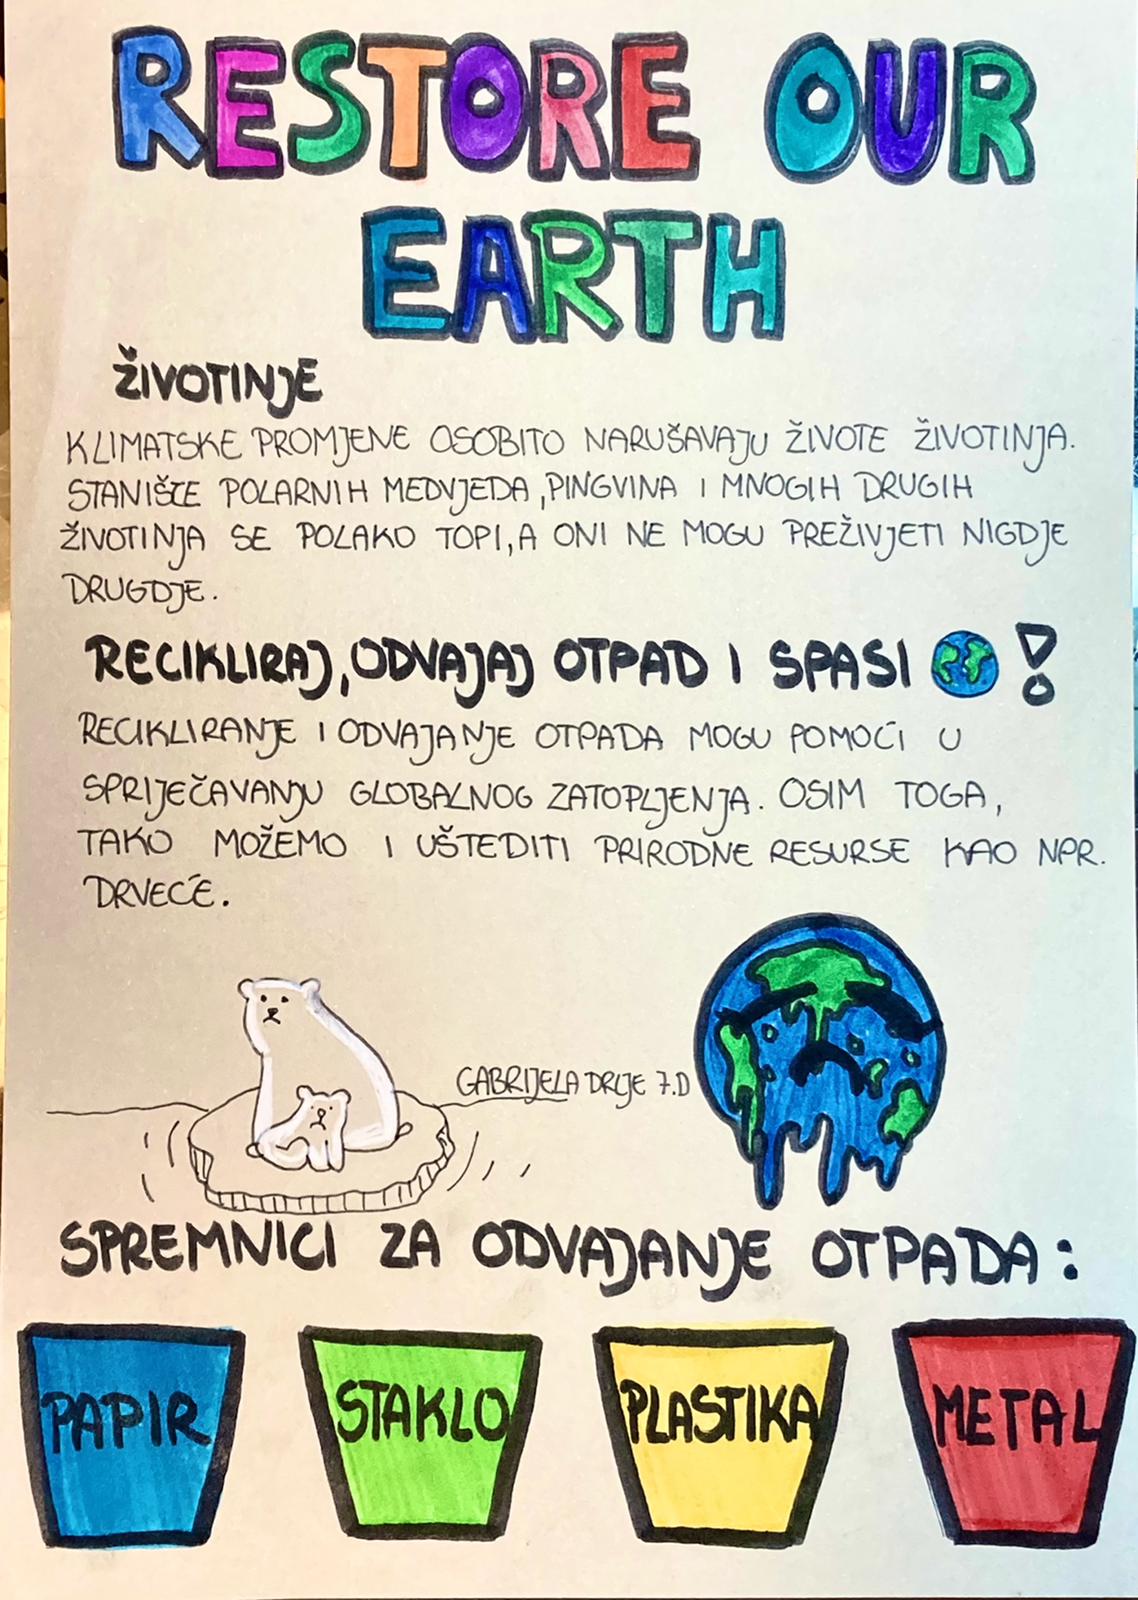 RESTORE OUR
EARTH
ŽIVOTINJE
KLIMATSKE PROMJENE OSOBITO NARUŠAVAJU ŽIVOTE ŽIVOTINJA.
STANIŠTE POLARNIH MEDVJEDA, PINGVINA I MNOGIH DRUGIH
ŽIVOTINJA SE POLAKO TOPI, A ONI NE MOGU PREŽIVJETI NIGDJE
DRUGDJE.
RECIKLIRAJ, ODVAJAJ OTPAD I SPASI !
RECIKLIRANJE I ODVAJANJE OTPADA MOGU POMOĆI U
SPRIJEČAVANJU GLOBALNOG ZATOPLJENJA. OSIM TOGA,
TAKO MOŽEMO I UŠTEDITI PRIRODNE RESURSE KAO NPR.
DRVEĆE.
GABRIJELA DRLJE 7.D
SPREMNICI ZA ODVAJANJE OTPADA:
PAPIR
STAKLO
PLASTIKA
METAL